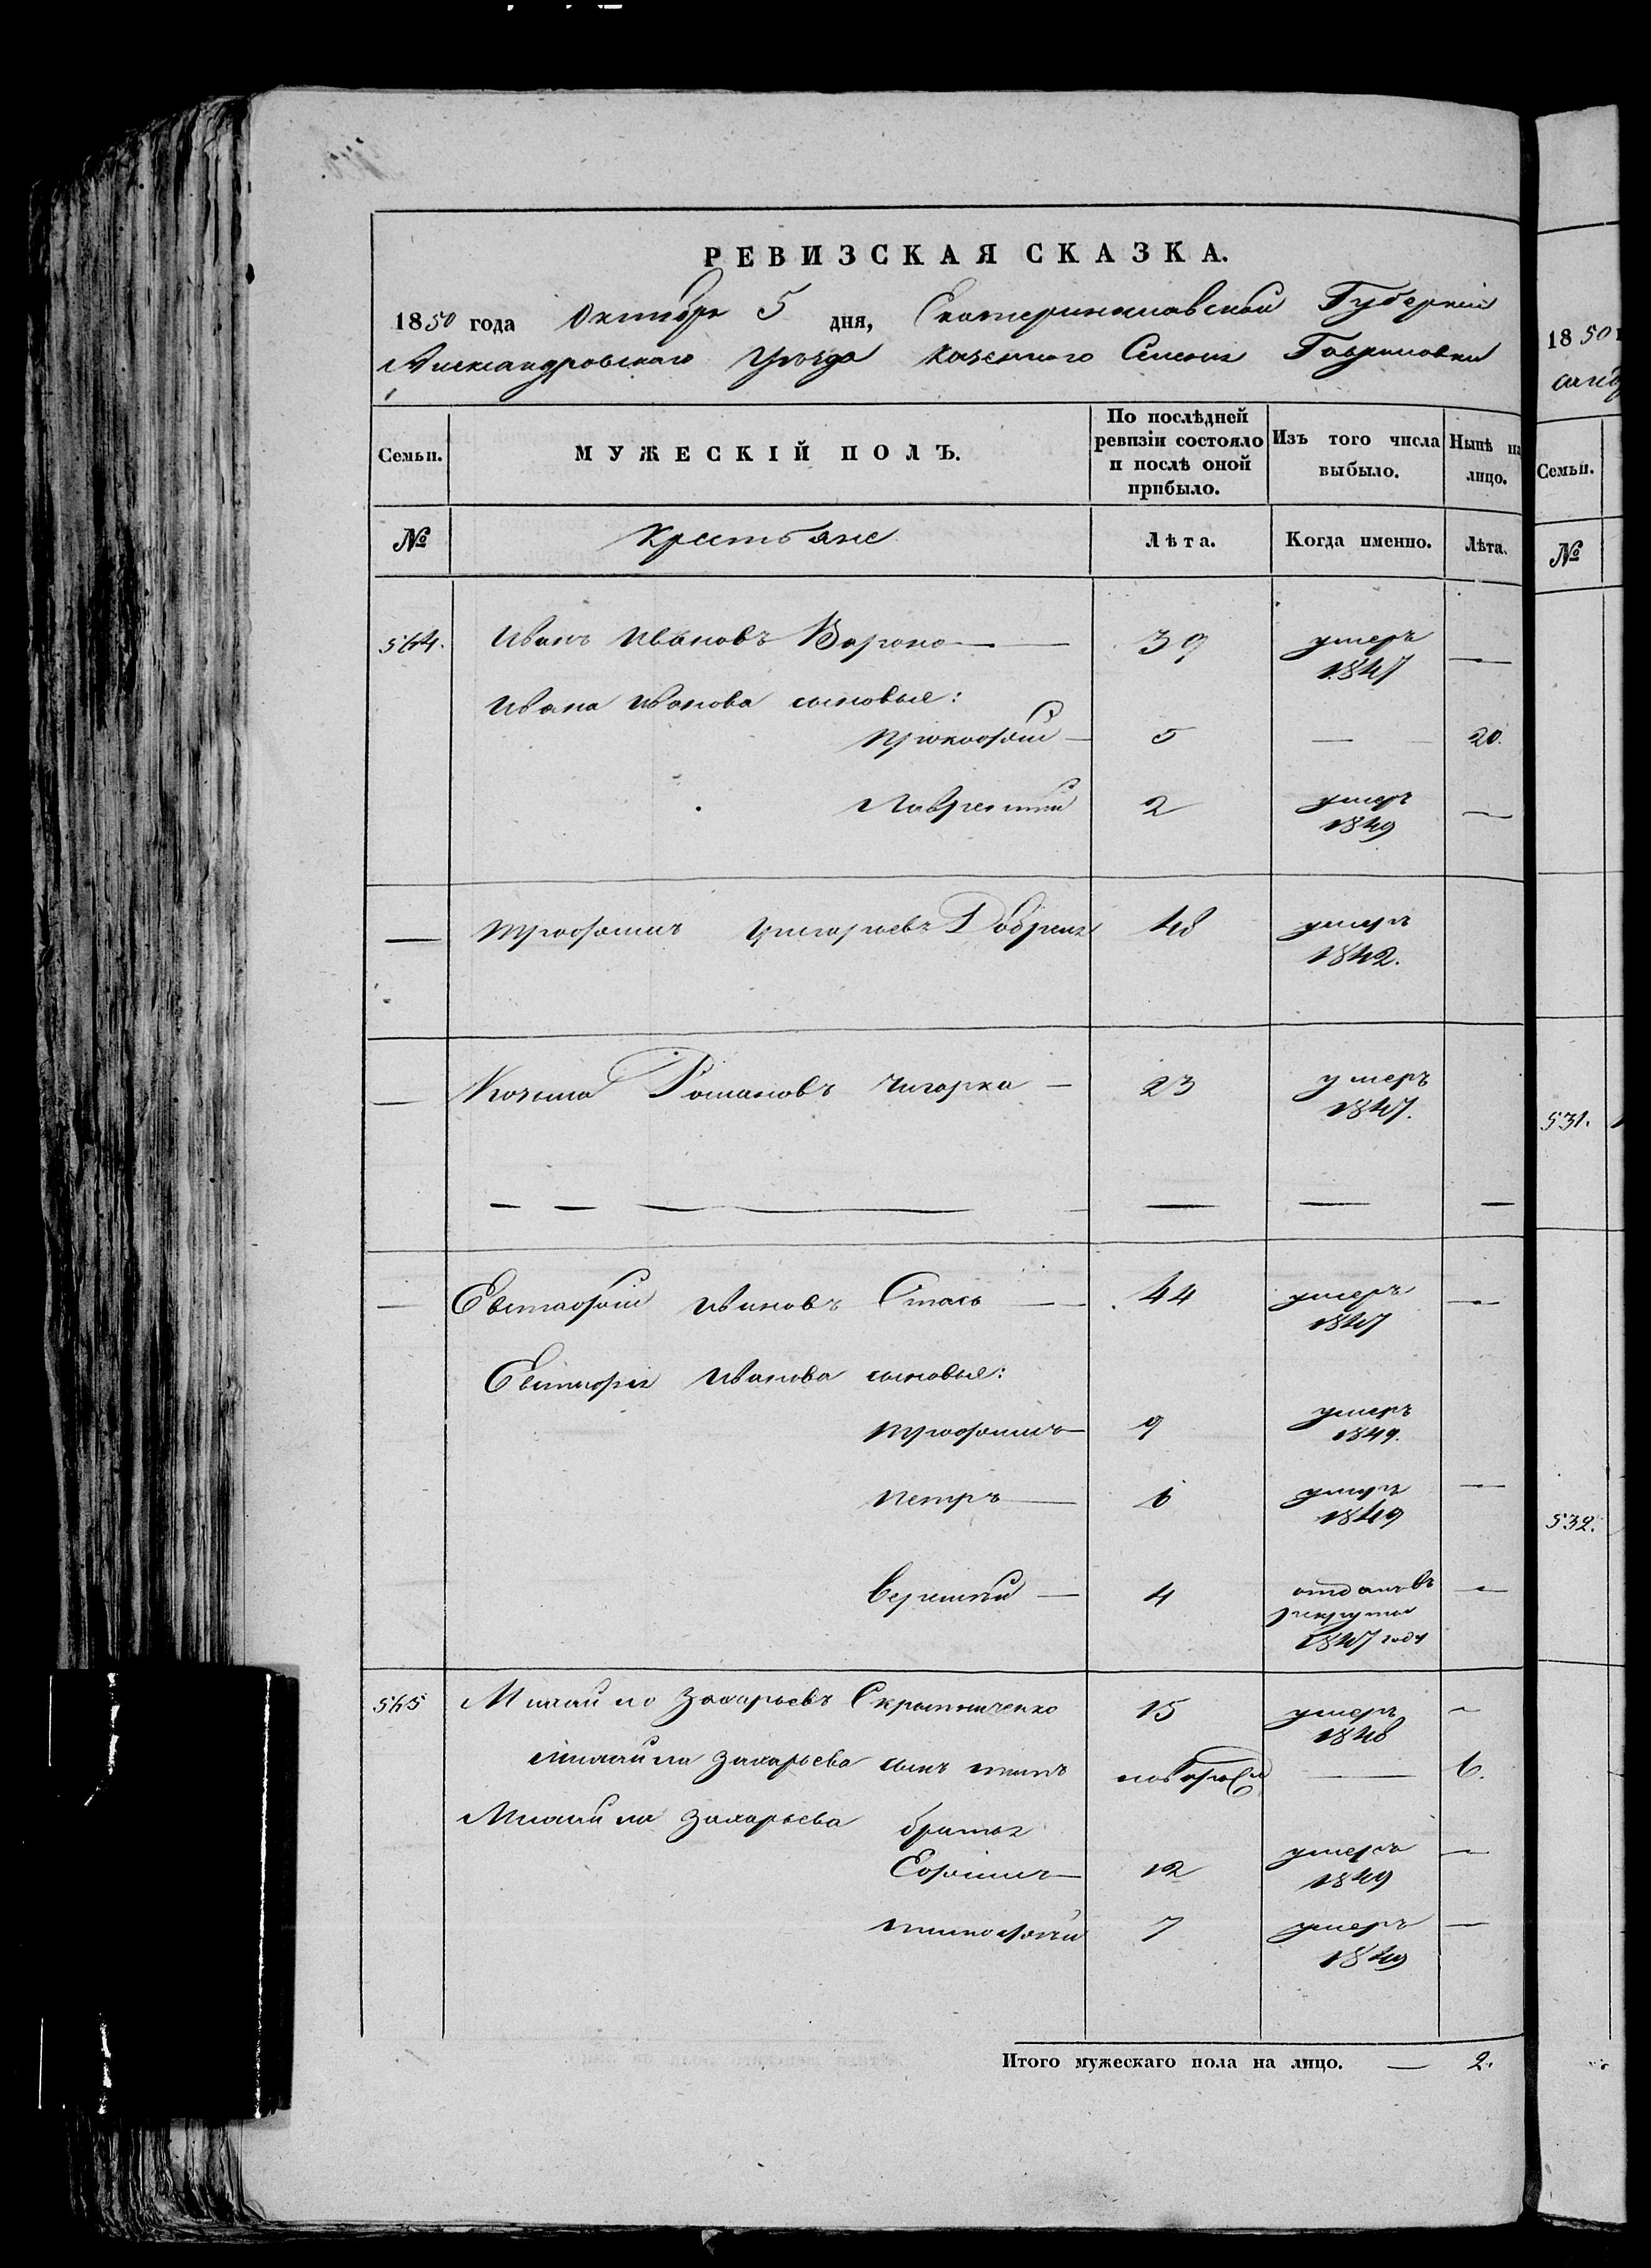 РЕВИЗСКАЯ СКАЗКА.
1850 года Октября 5 дня, Екатеринославской Губерніи
Александровскаго Уѣзда казенного Селенія Гавриловки
Семьи. МУЖЕСКІЙ ПОЛЪ. По послѣдней ревизіи состояло и послѣ оной прибыло. Изъ того числа выбыло. Нынѣ на лицо.
№ Крестьяне Лѣта. Когда именно. Лѣта.
564. Иванъ Ивановъ Ворона — 39 умеръ 1847 —
Ивана Иванова сыновья:
Прокофій — 5 — 20.
Лаврентій 2 умеръ 1849 —
— Трофимъ 48 умеръ 1842.
— Козьма Романовъ Чигорка — 23 умеръ 1847.
— — — — — —
— Евстафій Ивановъ Стась — 44 умеръ 1847 —
Евстафія Иванова сыновья:
Трофимъ — 9 умеръ 1849.
Петръ — 6 умеръ 1849 —
Терентій — 4 отданъ въ рекруты 1847 году —
565 Михайло Захарьевъ Скрыпниченко 15 умеръ 1848 —
Михайла Захарьева сынъ новорож — 6.
Михайла Захарьева братья
Ефимъ — 12 умеръ 1849 —
Тимофѣй 7 умеръ 1849 —
Итого мужескаго пола на лицо. — 2.
1850
Семьи.
№
531.
532.